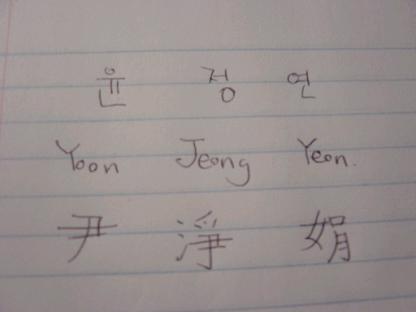 윤 정 연
Yoon Jeong Yeon.
尹 淨 娟